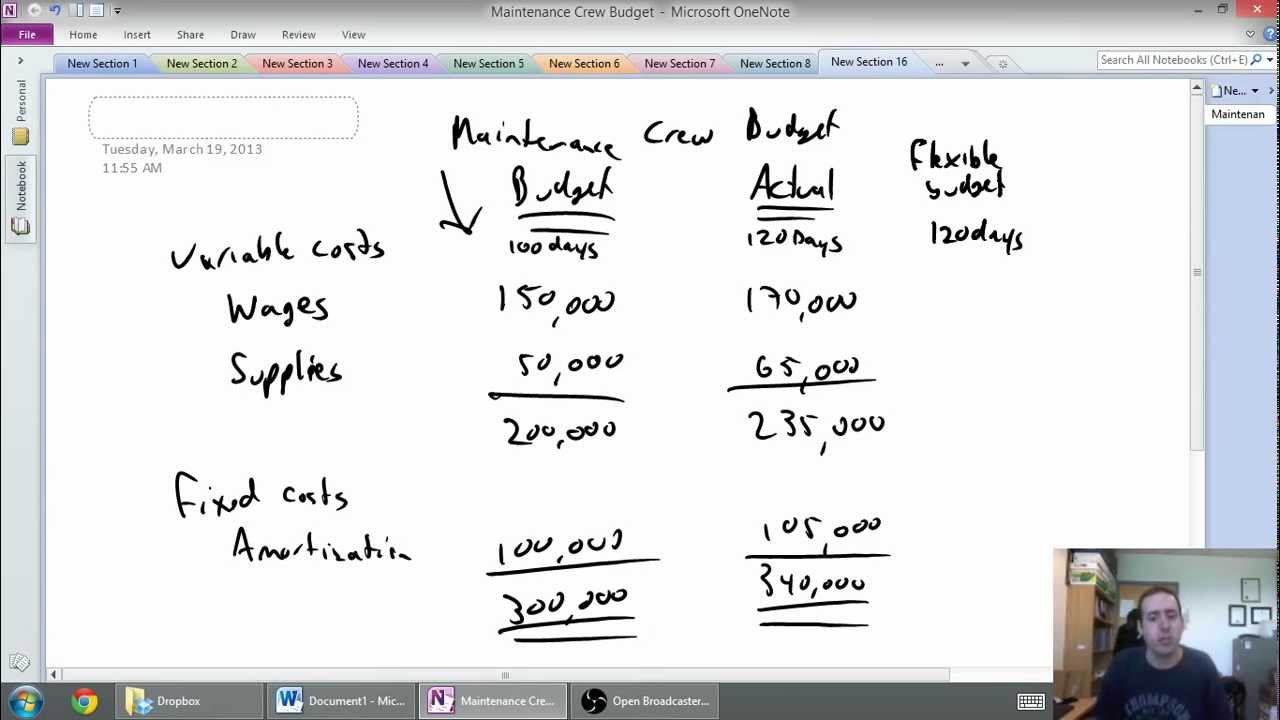 Maintenance Crew Budget - Microsoft OneNote
File Home Insert Share Draw Review View
New Section 1 New Section 2 New Section 3 New Section 4 New Section 5 New Section 6 New Section 7 New Section 8 New Section 16 ... Search All Notebooks (Ctrl+E)
Personal
Notebook
Ne...
Maintenan
Tuesday, March 19, 2013
11:55 AM
Maintenance Crew Budget
Budget Actual Flexible
budget
100 days 120 Days 120 days
Variable costs
Wages 150,000 170,000
Supplies 50,000 65,000
200,000 235,000
Fixed costs
Amortization 100,000 105,000
300,000 340,000
Dropbox Document1 - Mic... Maintenance Cre... Open Broadcaster...